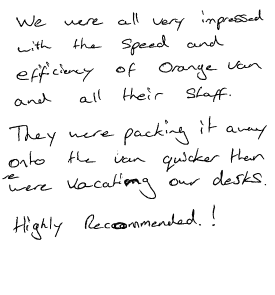 We were all very impressed
with the speed and
efficiency of Orange van
and all their Staff.
They were packing it away
onto the van quicker than
we were vacating our desks.
Highly Recommended.!